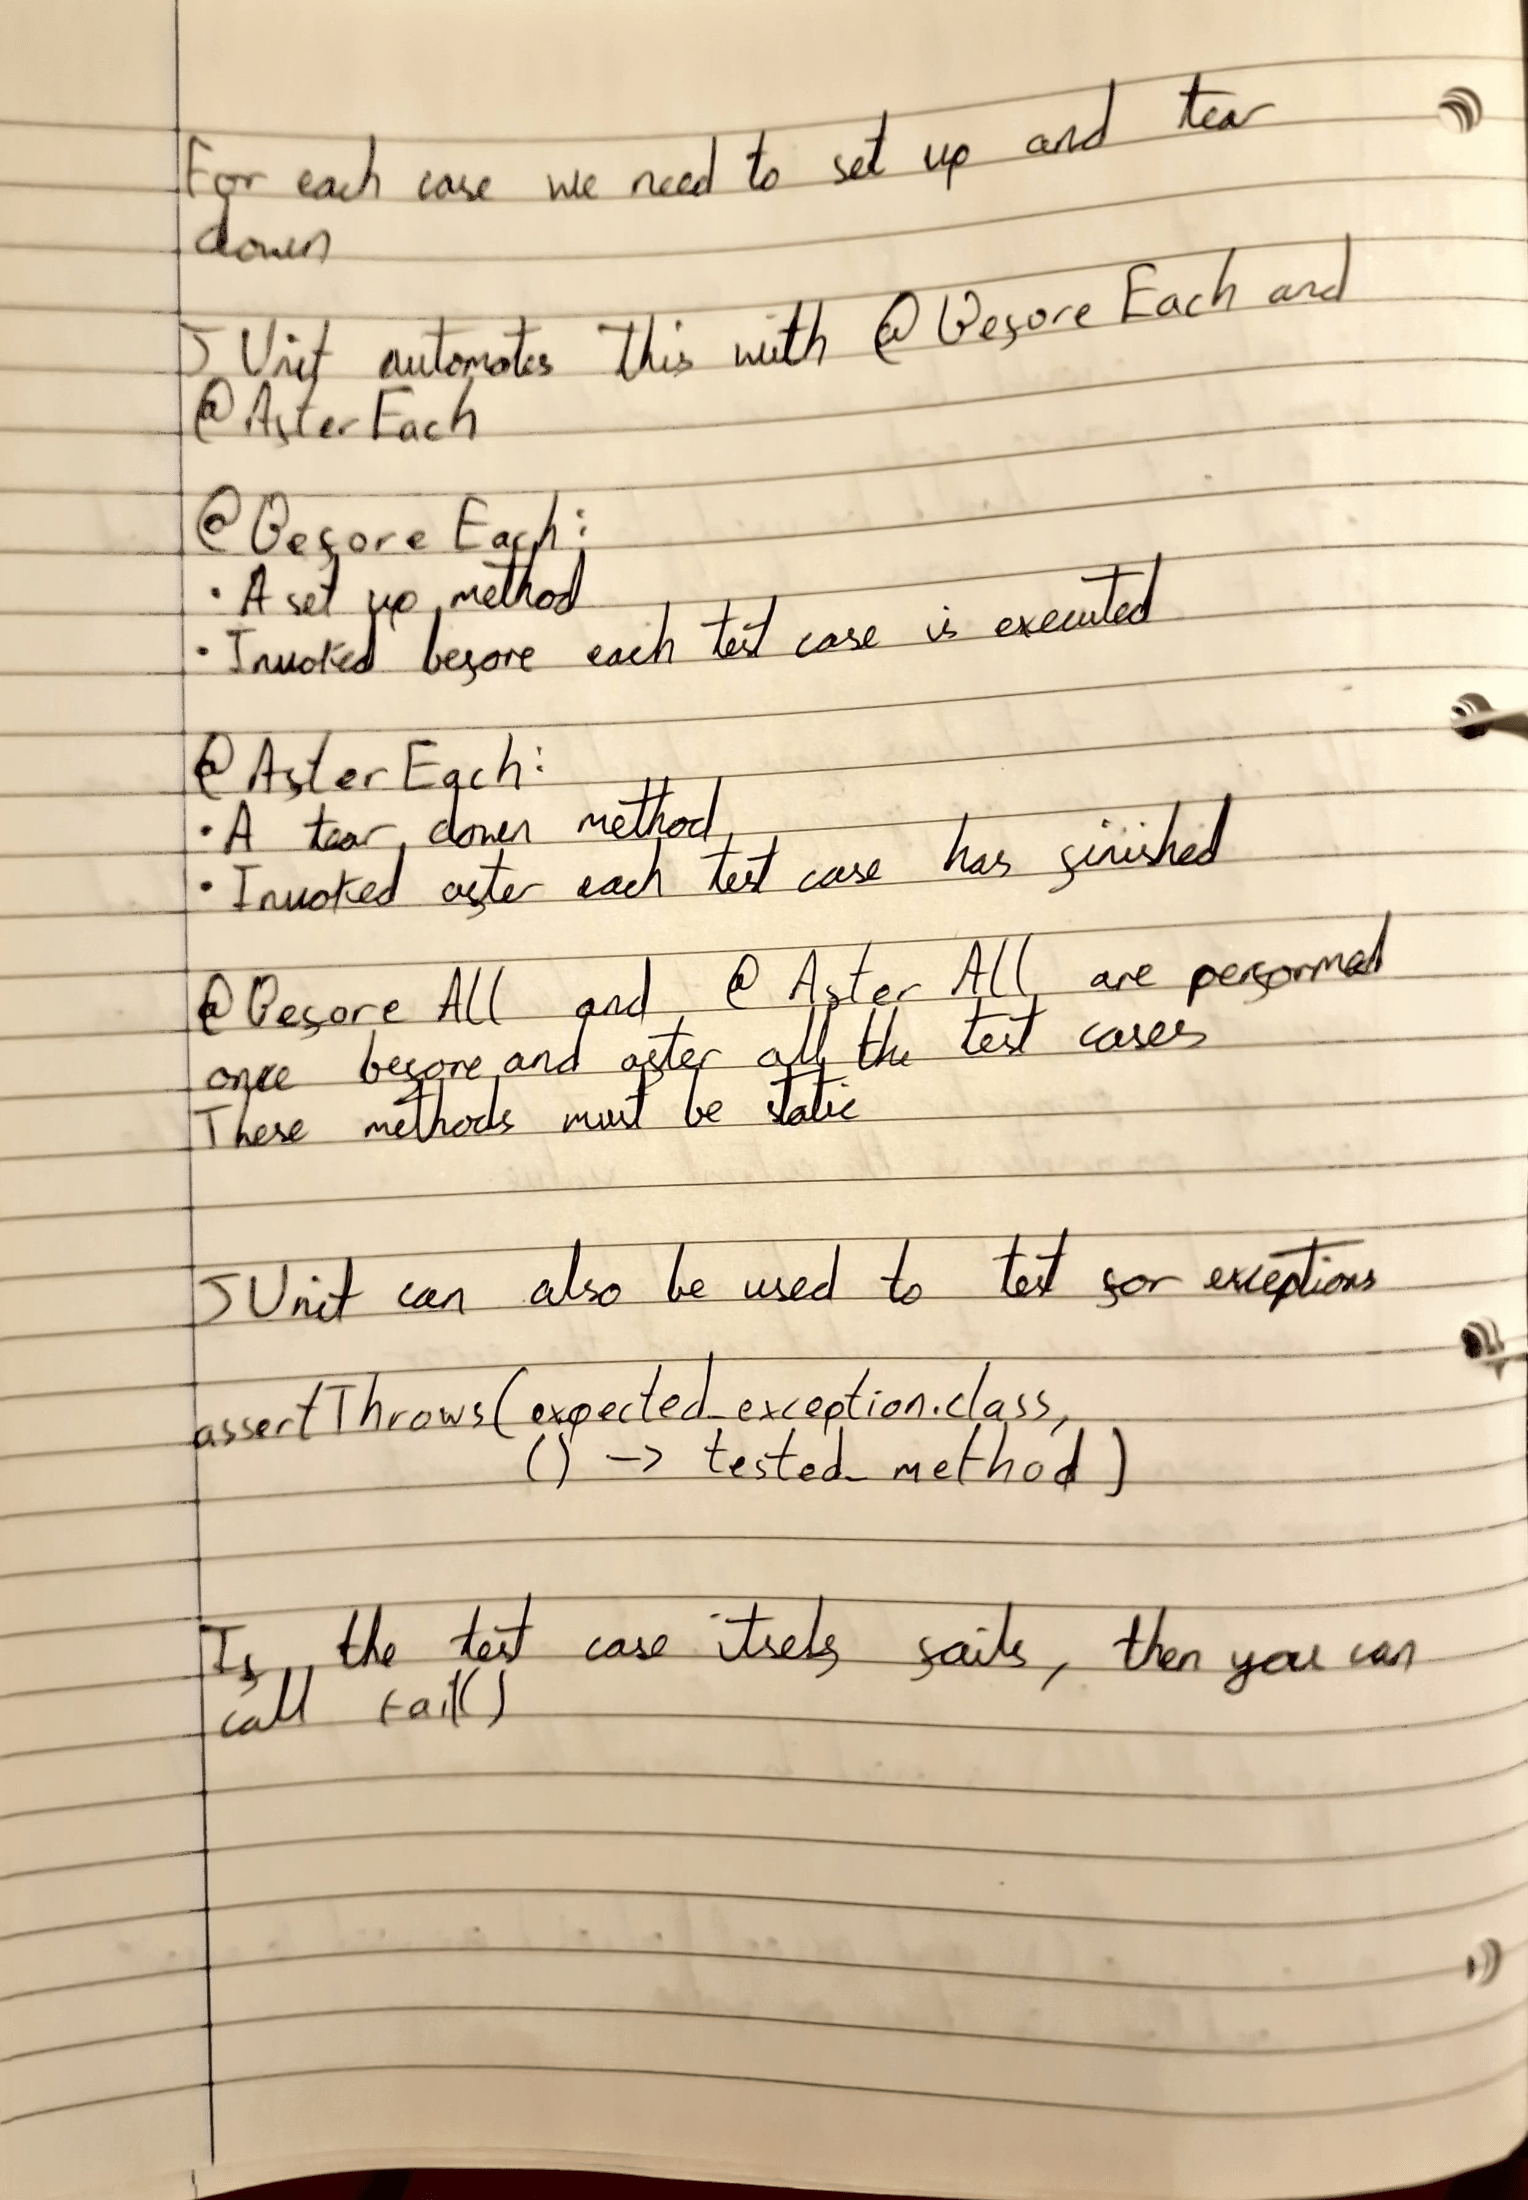 For each case we need to set up and tear
down
JUnit automates this with @BeforeEach and
@AfterEach
@BeforeEach:
• A set up method
• Invoked before each test case is executed
@AfterEach:
• A tear down method
• Invoked after each test case has finished
@BeforeAll and @AfterAll are performed
once before and after all the test cases
These methods must be static
JUnit can also be used to test for exceptions
assertThrows(expected_exception.class,
() -> tested_method)
If the test case itself fails, then you can
call fail()